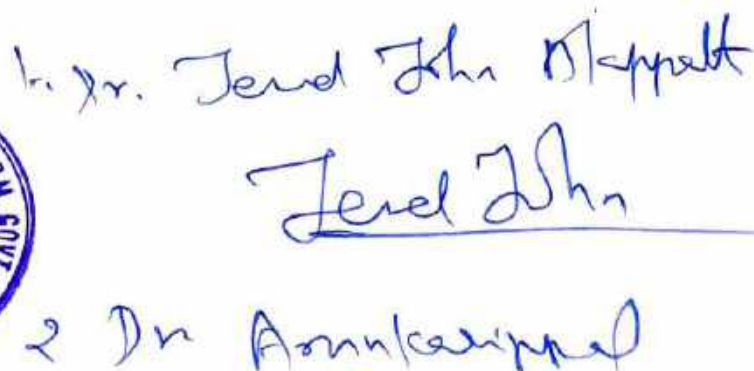 1. Dr. Jerid John Mappatt
Jerid John
GOVT
2 Dr Arun Karippal